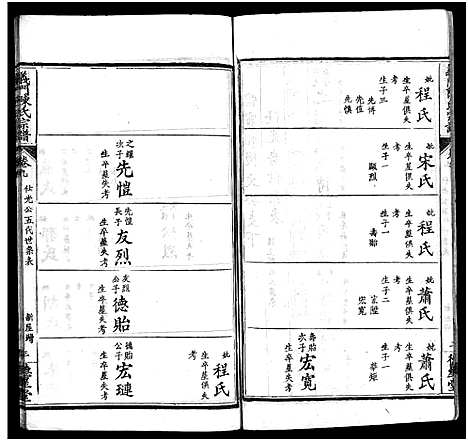 妣程氏
生卒墓俱失
考
生子三
先傅
先值
先慎
妣宋氏
生卒墓俱失
考
生子一
顯烈
妣程氏
生卒墓俱失
考
生子一
壽貽
妣蕭氏
生卒墓俱失
考
生子二
宏寬
妣蕭氏
生卒墓俱失
考
生子一
壽貽
次子
宏寬
生卒墓失考
義門陳氏宗譜
卷九
仕光公五代世系表
之耀
次子
先愷
生卒墓失考
先愷
長子
友烈
生卒墓失考
友烈
公子
德貽
生卒墓失考
德貽
公子
宏璉
生卒墓失考
妣程氏
生卒墓俱失
考
德星堂